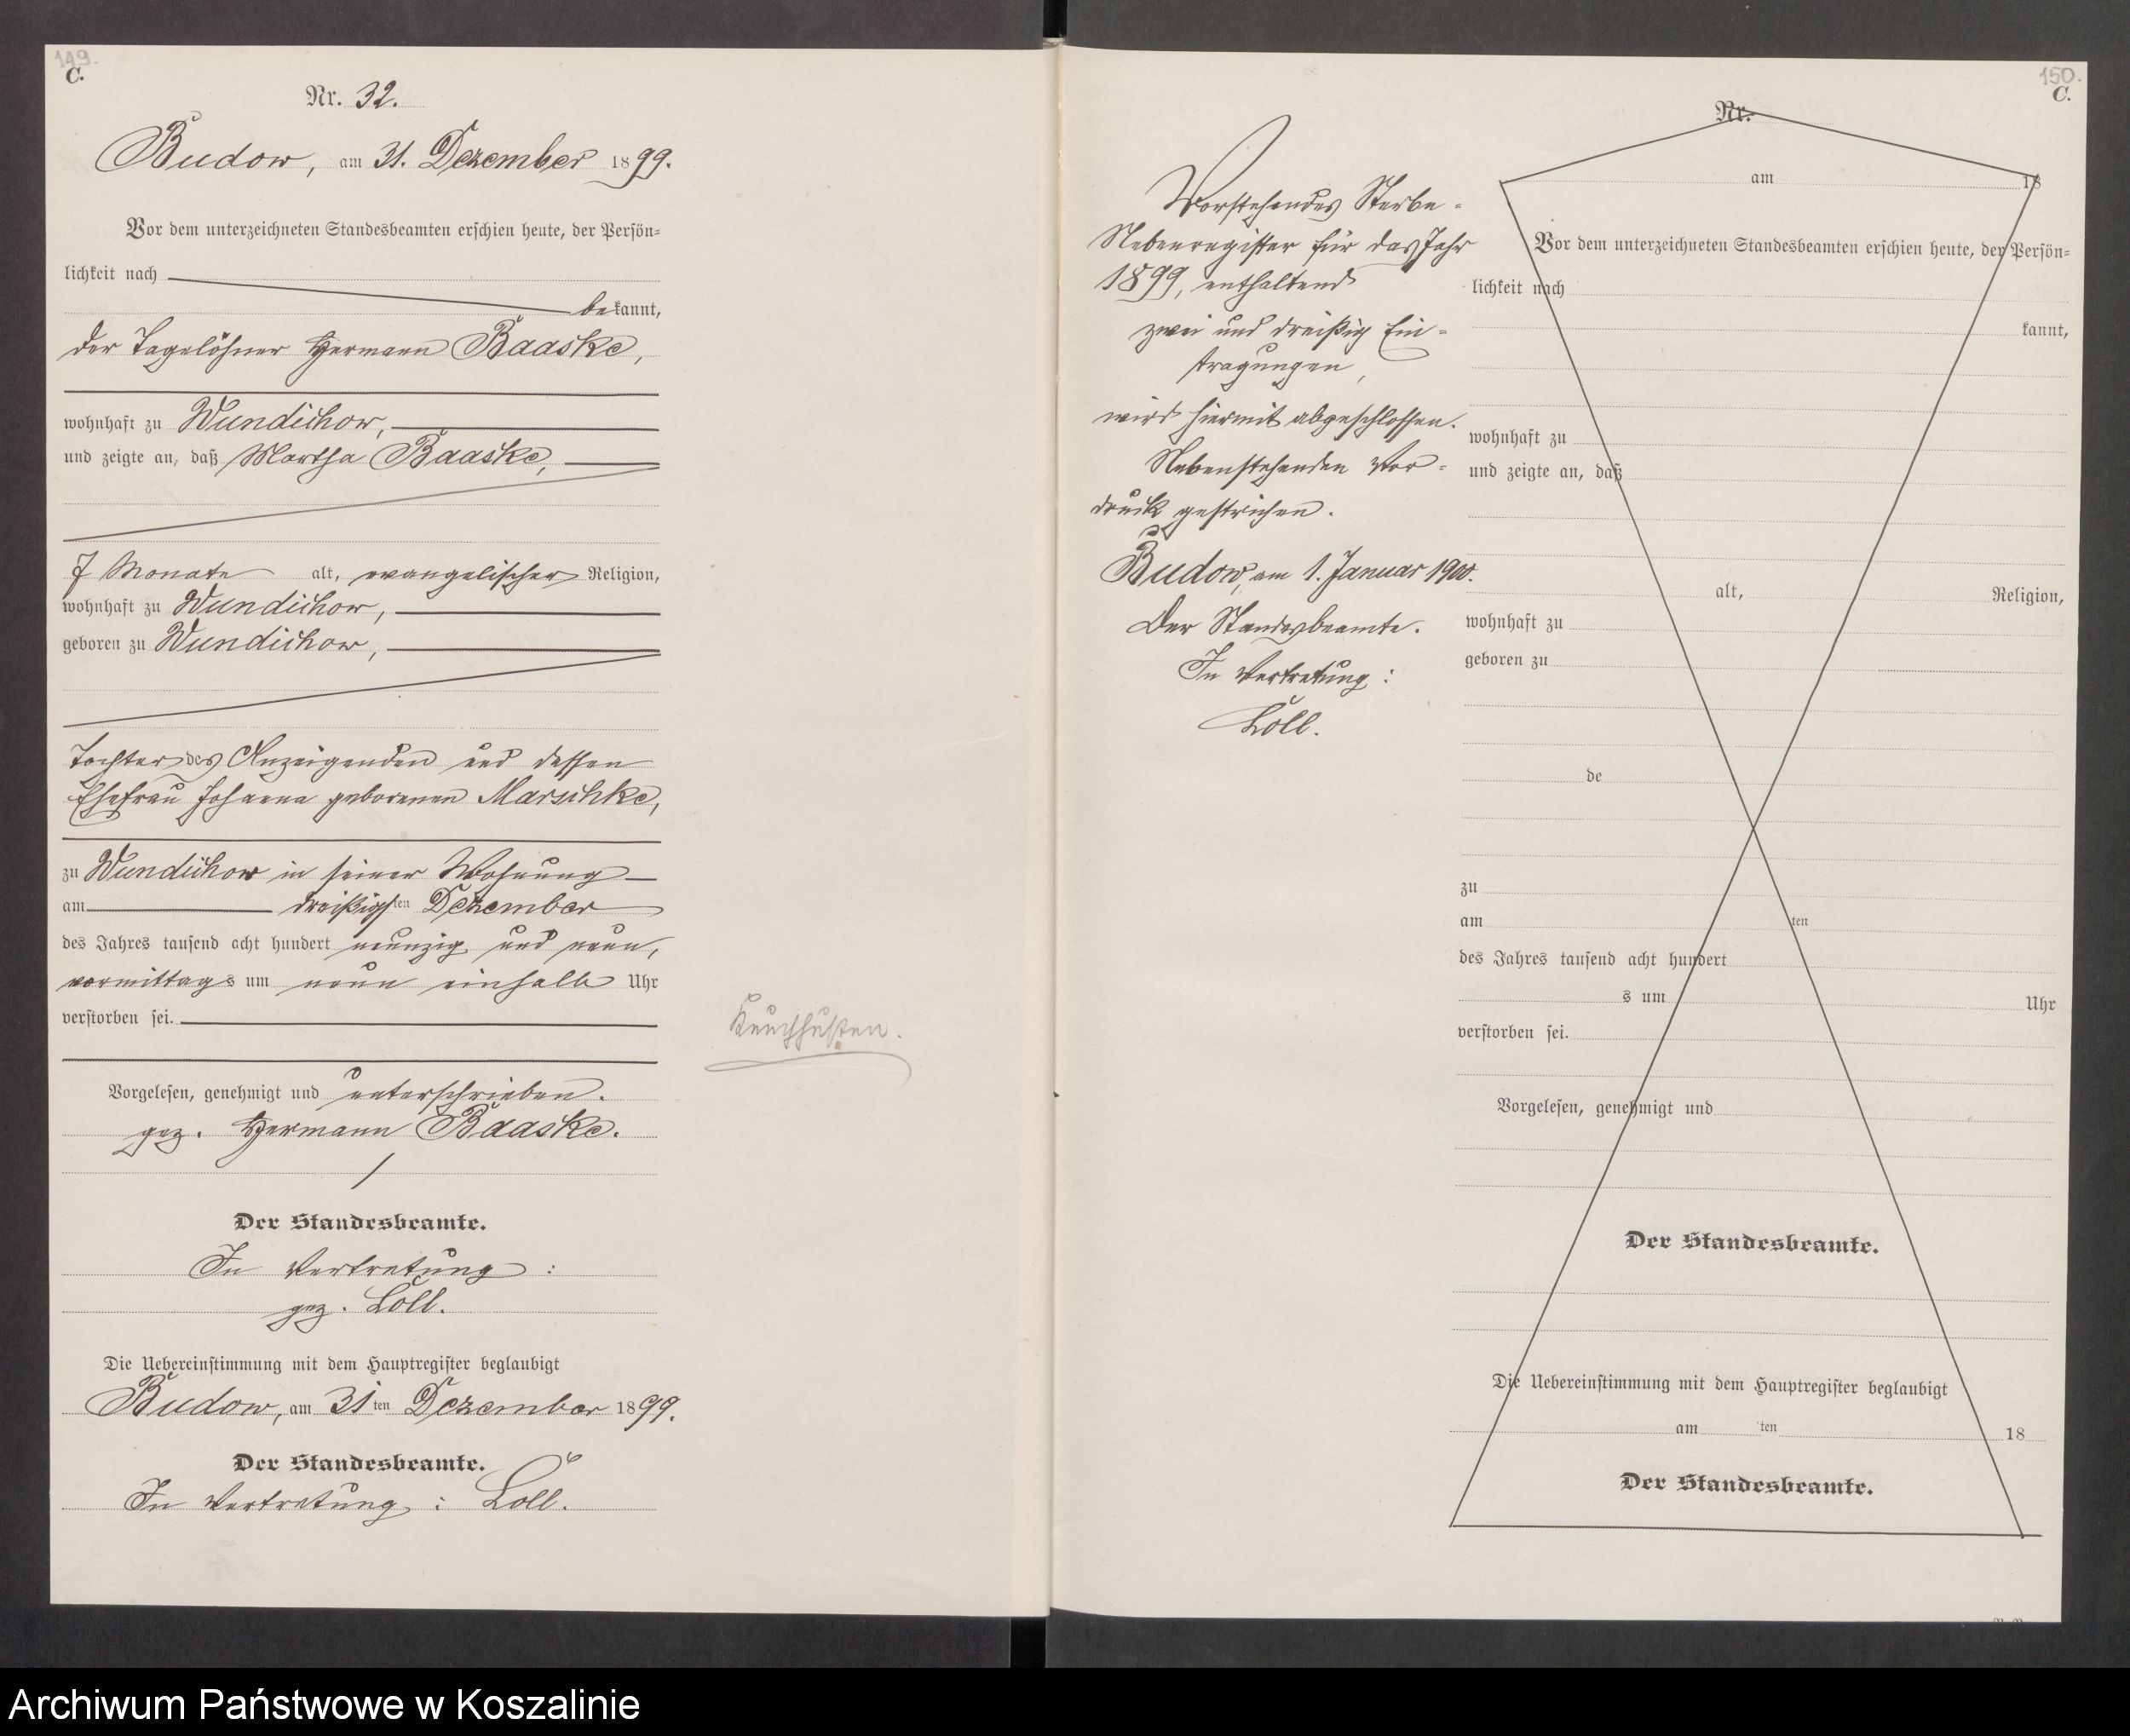 149.
C.
Nr. 32.
Budow, am 31. Dezember 1899.
Vor dem unterzeichneten Standesbeamten erschien heute, der Persön-
lichkeit nach
bekannt,
der Tagelöhner Hermann Baaske,
wohnhaft zu Wundichow,
und zeigte an, daß Martha Baaske,
7 Monate alt, evangelischer Religion,
wohnhaft zu Wundichow,
geboren zu Wundichow,
Tochter des Anzeigenden und dessen
Ehefrau Johanna geborenen Marschke,
zu Wundichow in seiner Wohnung
am dreißigsten Dezember
des Jahres tausend acht hundert neunzig und neun,
vormittags um neun einhalb Uhr
verstorben sei.
Keuchhusten.
Vorgelesen, genehmigt und unterschrieben.
gez. Hermann Baaske.
Der Standesbeamte.
In Vertretung:
gez. Löll.
Die Uebereinstimmung mit dem Hauptregister beglaubigt
Budow, am 31ten Dezember 1899.
Der Standesbeamte.
In Vertretung: Löll.
150.
C.
Vorstehendes Sterbe-
Nebenregister für das Jahr
1899, enthaltend
zwei und dreißig Ein-
tragungen,
wird hiermit abgeschlossen.
Nebenstehenden Vor-
druck gestrichen.
Budow, am 1. Januar 1900.
Der Standesbeamte.
In Vertretung:
Löll.
Nr.
am 18
Vor dem unterzeichneten Standesbeamten erschien heute, der Persön-
lichkeit nach
kannt,
wohnhaft zu
und zeigte an, daß
alt, Religion,
wohnhaft zu
geboren zu
de
zu
am ten
des Jahres tausend acht hundert
s um Uhr
verstorben sei.
Vorgelesen, genehmigt und
Der Standesbeamte.
Die Uebereinstimmung mit dem Hauptregister beglaubigt
am ten 18
Der Standesbeamte.
Archiwum Państwowe w Koszalinie